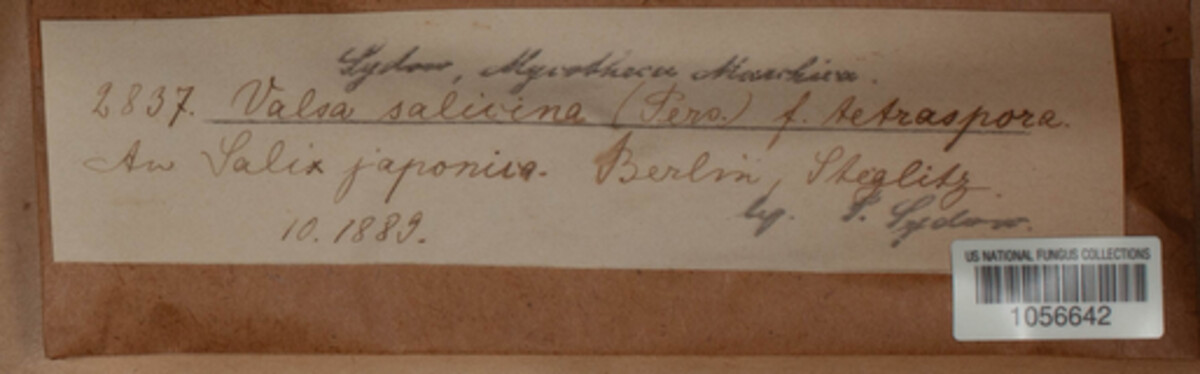 Sydow, Mycotheca Marchica.
2837. Valsa salicina (Pers.) f. tetraspora.
An Salix japonica. Berlin, Steglitz.
10. 1889.
leg. P. Sydow.
US NATIONAL FUNGUS COLLECTIONS
1056642